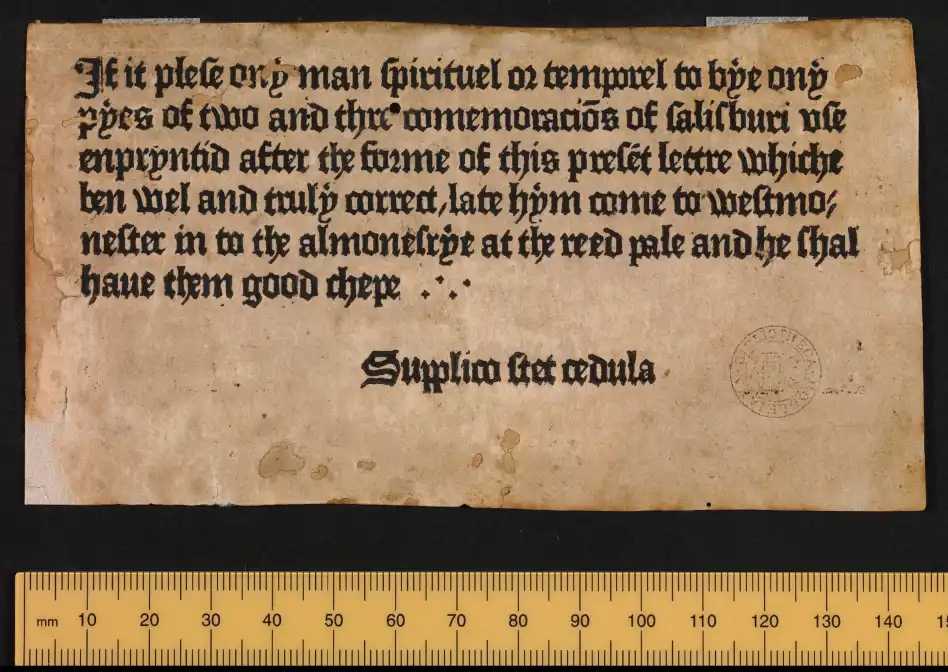 If it plese ony man spirituel or temporel to bye ony
pyes of two and thre comemoraciōs of salisburi vse
enpryntid after the forme of this presēt lettre whiche
ben wel and truly correct, late hym come to westmo:
nester in to the almonesrye at the reed pale and he shal
haue them good chepe .·.·
Supplico stet cedula
mm 10 20 30 40 50 60 70 80 90 100 110 120 130 140